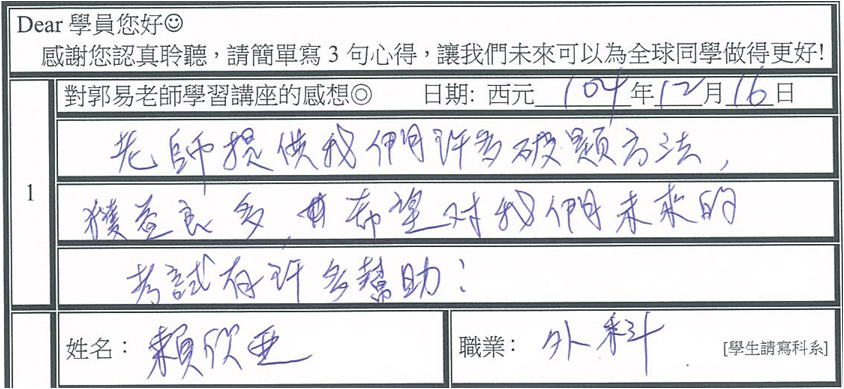 Dear 學員您好☺
感謝您認真聆聽，請簡單寫 3 句心得，讓我們未來可以為全球同學做得更好!
對郭易老師學習講座的感想◎ 日期: 西元 104 年 12 月 16 日
1
老師提供我們許多破題方法，
獲益良多，希望对我們未來的
考試有許多幫助！
姓名： 賴欣亜
職業： 外科 [學生請寫科系]